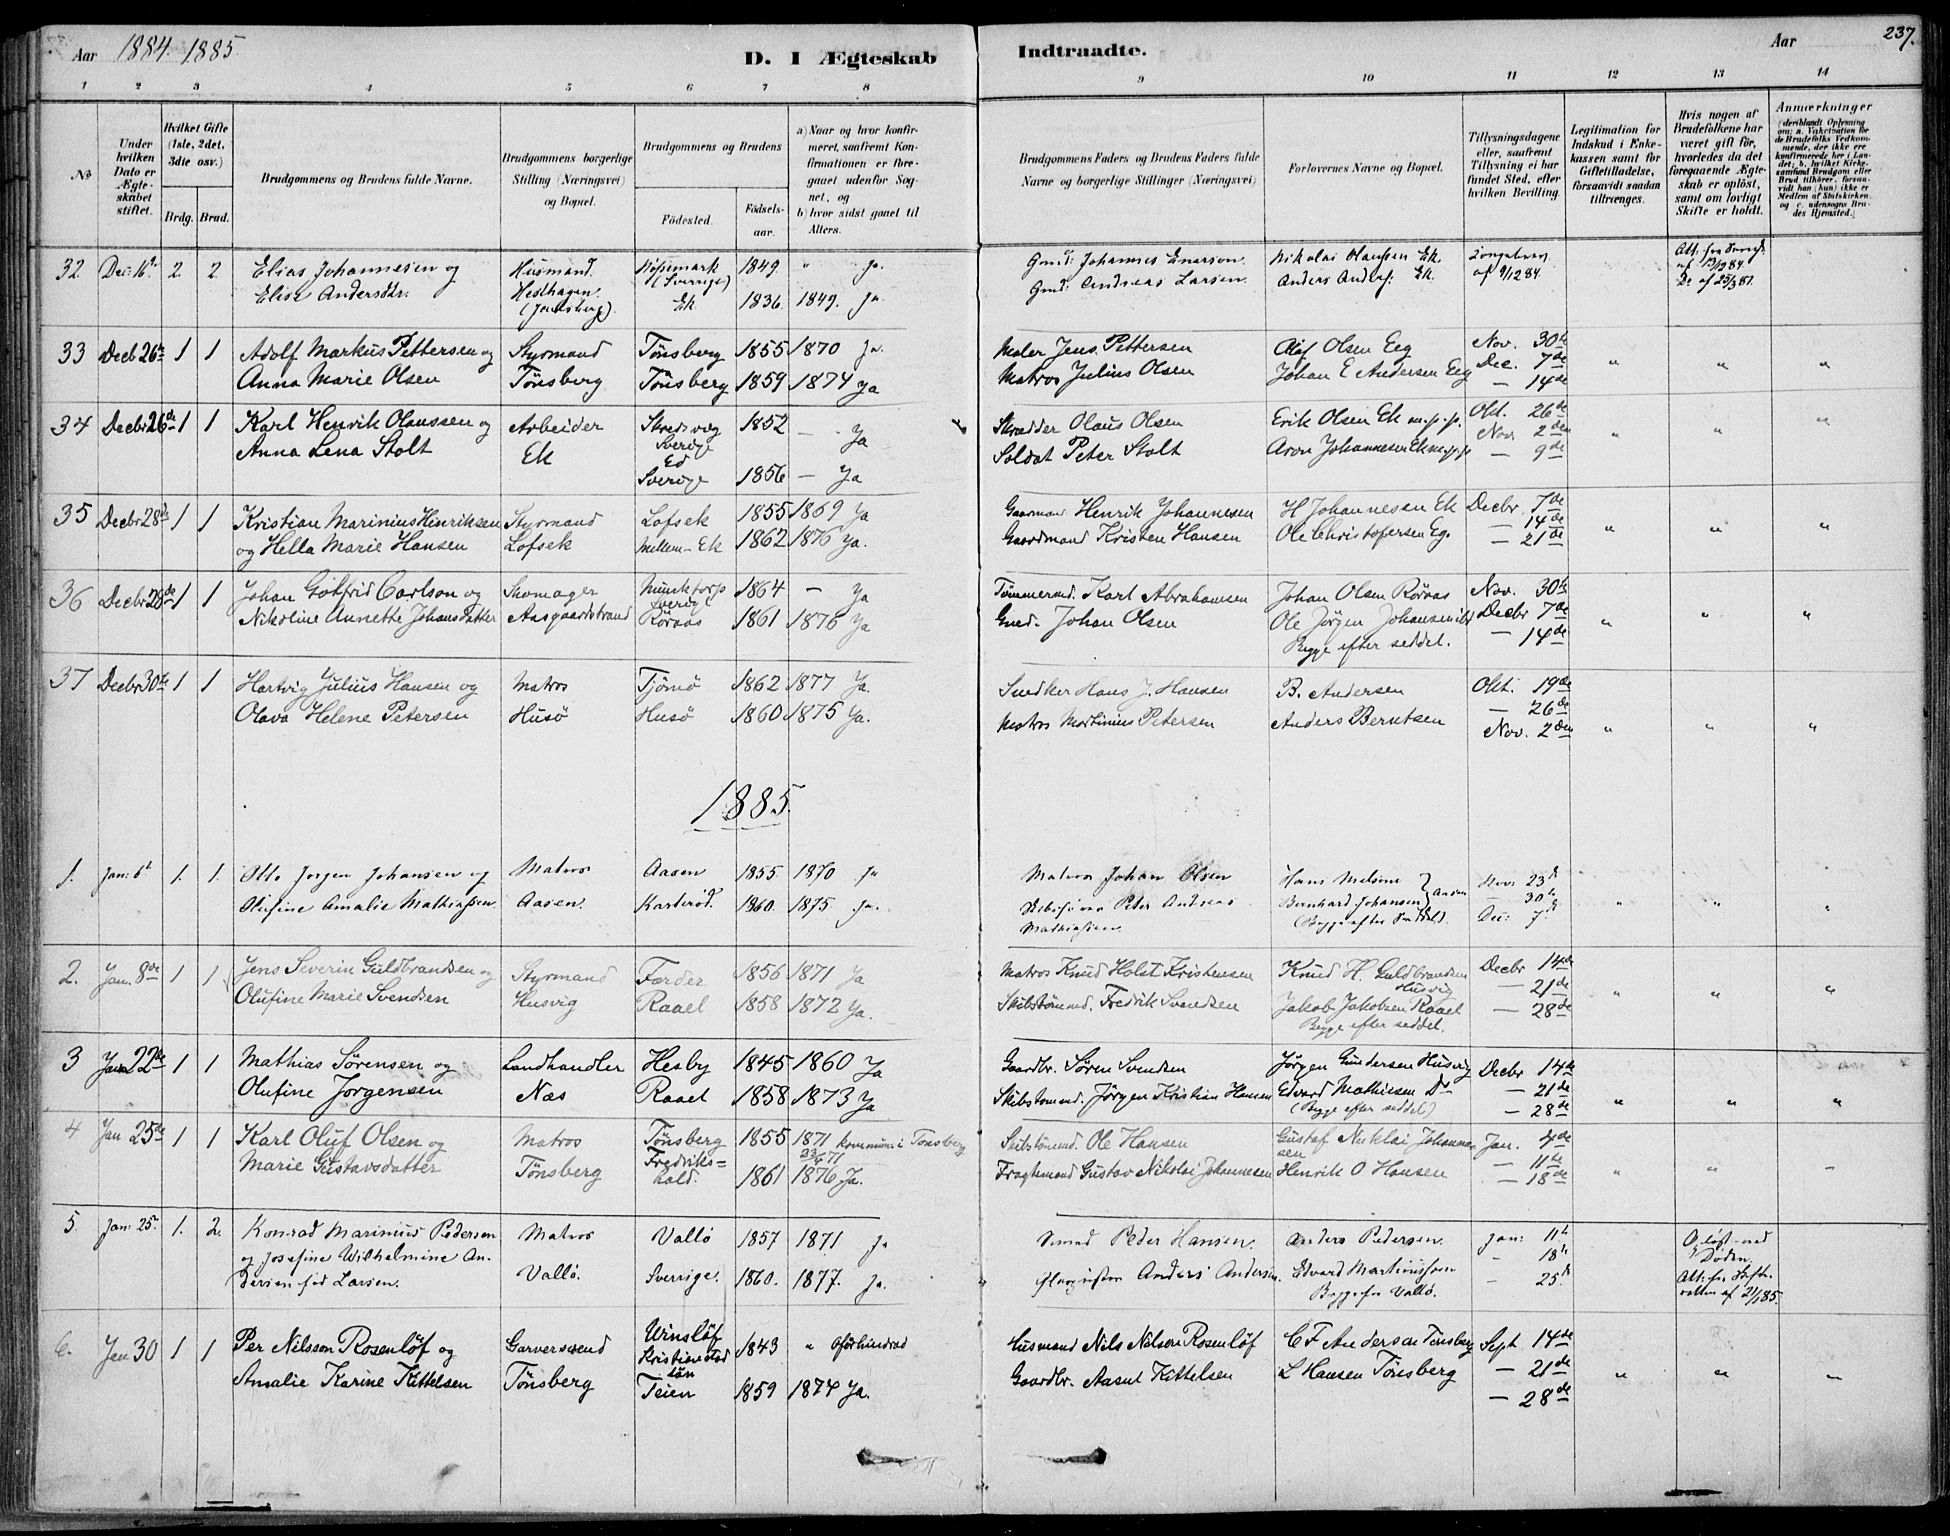 Aar 1884. 1885. D. I Ægteskab Indtraadte. Aar 237.
1 2 3 4 5 6 7 8 9 10 11 12 13 14
No
Under hvilken Dato er Ægteskabet stiftet.
Hvilket Gifte (1ste, 2det, 3dte osv.)
Brdg. Brud.
Brudgommens og Brudens fulde Navne.
Brudgommens borgerlige Stilling (Næringsvei) og Bopæl.
Brudgommens og Brudens
Fødested. Fødselsaar.
a) Naar og hvor konfirmeret, saafremt Konfirmationen er foregaaet udenfor Sognet, og
b) hvor sidst gaaet til Alters.
Brudgommens Faders og Brudens Faders fulde Navne og borgerlige Stillinger (Næringsvei)
Forlovernes Navne og Bopæl.
Tillysningsdagene eller, saafremt Tillysning ei har fundet Sted, efter hvilken Bevilling.
Legitimation for Indskud i Enkekassen samt for Giftetilladelse, forsaavidt saadan tiltrænges.
Hvis nogen af Brudefolkene har været gift før, hvorledes da det foregaaende Ægteskab er opløst, samt om lovligt Skifte er holdt.
Anmærkninger (deriblandt Oplysning om: a. Vaksination for de Brudefolks Vedkommende, der ikke ere konfirmerede her i Landet; b. hvilket Kirkesamfund Brudgom eller Brud tilhører, forsaavidt han (hun) ikke er Medlem af Statskirken, og c. udensogns Brudes Hjemsted.)
32 Dec: 16de 2 2 Elias Johannesen og Husmand. (Sverrige) 1849. " Ja. Gmd: Johannes Nikolai Ek.
Elise Andersdtr. Hesthagen. Ek. 1836. 1849. Ja. Gmd: Andreas Larsen. Anders Ek. af 9/12 84.
33 Decb 26de 1 1 Adolf Markus Pettersen og Styrmand Tönsberg 1855 1870 Ja. Maler Jens Pettersen Olaf Olsen Eeg Nov. 30te
Anna Marie Olsen Tönsberg Tönsberg 1859 1874 Ja Matros Julius Olsen Johan E Andersen Eeg Dec. 7de " " "
— 14de
34 Decbr 26de 1 1 Karl Henrik Olaussen og Arbeider Skredsvig Sverige 1852 — Ja Skrædder Olaus Olsen Erik Olsen Ek m.p.p. Okt. 26de
Anna Lena Stolt Ek Ed Sverige 1856 — Ja Soldat Peter Stolt Aron Johannesen Ek m.p.p. Nov 2den " " "
— 9de
35 Decbr 28de 1 1 Kristian Marinius Henriksen Styrmand Lofsek 1855 1869 Ja Gaarmand Henrik Johannesen H Johannesen Ek Decbr. 7de
og Hella Marie Hansen Lofsek Mellem-Ek 1862 1876 Ja. Gaardmand Kristen Hansen Ole Christofersen Eg. — 14de " " "
— 21de
36 Decbr 28de 1 1 Johan Gotfrid Carlson og Skomager Munktorp Sverige 1864 — Ja Tømmermd. Karl Abrahamsen Johan Olsen Röraas Nov. 30te
Nikoline Annette Johansdatter Aasgaardstrand Röraas 1861 1876 Ja Gmd. Johan Olsen Ole Jörgen Johansen Decbr 7de " " "
Begge efter seddel. — 14de
37 Decbr 30te 1 1 Hartvig Julius Hansen og Matros Tjömö 1862 1877 Ja. Snedker Hans J. Hansen B. Andersen Okt. 19de
Olava Helene Petersen Husö Husö 1860 1875 Ja. Matros Martinius Petersen Anders Berntsen — 26de
Nov. 2den " " "
1885.
1. Jan: 6te 1. 1. Otto Jorgen Johansen og Matros Aasen 1855 1870 Ja Matros Johan Olsen Hans Nov: 23de
Olufine Amalie Mathiassen. Aasen. 1860. 1875 Ja. Peter Andreas Mathiassen. Bernhard Johansen — 30te
(Begge efter Seddel). Dec: 7de " " "
2. Jan. 8de 1 1 Jens Severin Guldbrandsen og Styrmand Færder 1856 1871 Ja Matros Knud Holst Kristensen Knud H. Guldbrandsen Husvig Decbr 14de
Olufine Marie Svendsen Husvig Raael 1858 1872 Ja. Skibstømmd. Fredrik Svendsen Jakob Jakobsen Raael — 21de " " "
Begge efter seddel. — 28de
3 Jan 22de 1 1 Mathias Sørensen og Landhandler Hesby 1845 1860 Ja Gaardbr. Søren Svendsen Jørgen Gundersen Husvig Decbr 14de
Olufine Jørgensen Næs Raael 1858 1873 Ja Skibstømmd. Jörgen Kristian Hansen Edvard Mathiesen Do — 21de
(Begge efter seddel) — 28de " " "
4 Jan 25de 1 1 Karl Oluf Olsen og Matros Tönsberg 1855 1871 Kommun: i Tönsberg Skibstømmd. Ole Hansen Gustaf Niklai Johannessen Jan. 4de
Marie Gustavsdatter Tönsberg Fredrikshald. 1861 1876 Ja. Fragtemand Gustav Nikolai Johannesen Henrik O Hansen — 11te
— 18de " " "
5. Jan: 25de 1. 2. Konrad Marinius Pedersen Matros Vallö 1857 1871 Ja Smed Peder Hansen. Anders Pedersen. Jan: 11te
og Josefine Wilhelmine Andersen født Larsen. Vallö. Sverrige. 1860. 1877. Ja. Anders Andersen. Edvard Martinussen — 18de
Begge fra Vallö. — 25de
Opløst ved Døden. Att: fra Skifteretten af 21/1 85.
6. Jan 30 1 1 Per Nilsson Rosenlöf og Garversvend Winslöf Kristianstad län 1843 " Oförhindrad Husmand Nils Nilson Rosenlöf C F Andersen Tönsberg Sept 14de
Amalie Karine Kittelsen Tönsberg Teien 1859 1874 Ja. Gaardbr. Aasul Kittelsen L Hansen Tönsberg — 21de " " "
— 28de